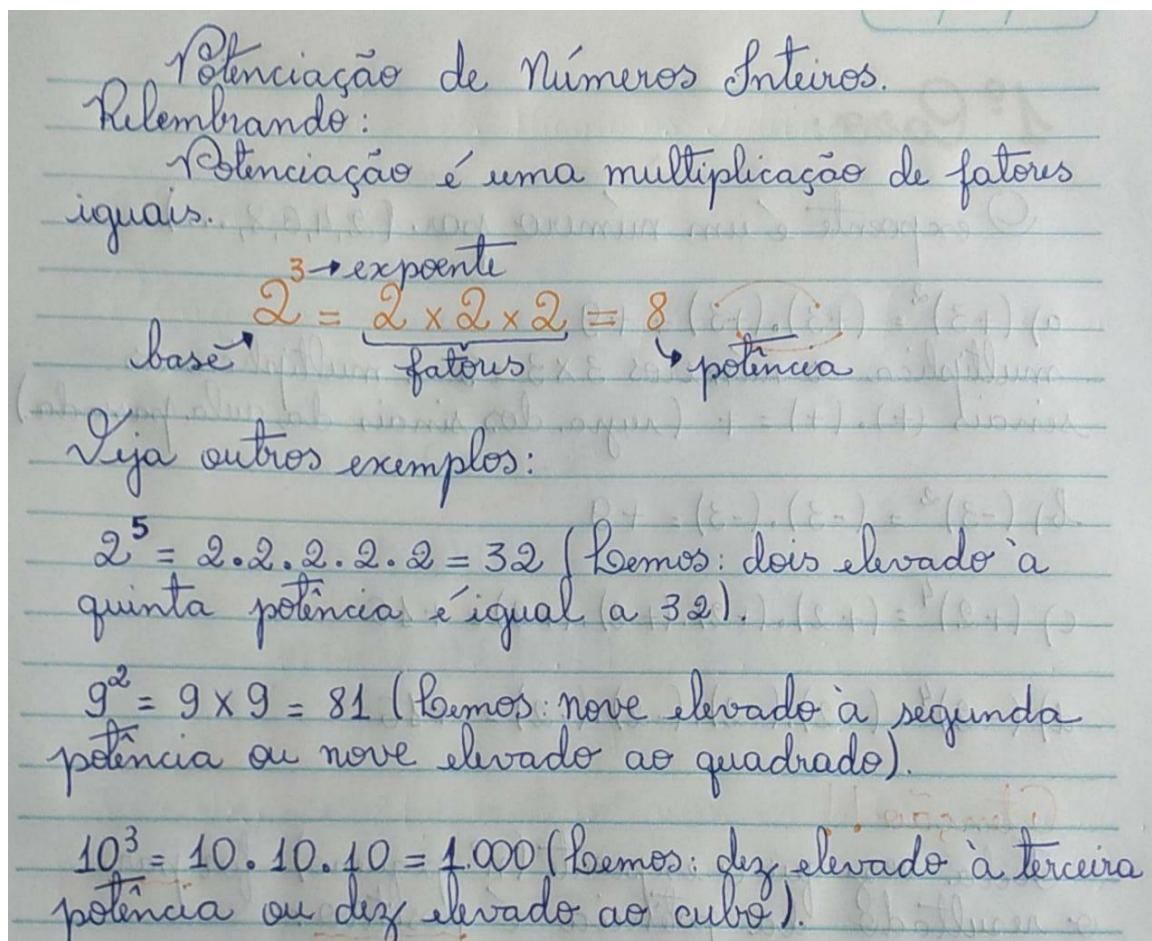 Potenciação de Números Inteiros.
Relembrando:
Potenciação é uma multiplicação de fatores
iguais.
3 → expoente
2 = 2 x 2 x 2 = 8
base fatores potência
Veja outros exemplos:
2⁵ = 2.2.2.2.2 = 32 (Lemos: dois elevado à
quinta potência é igual a 32).
9² = 9 x 9 = 81 (Lemos: nove elevado à segunda
potência ou nove elevado ao quadrado).
10³ = 10.10.10 = 1.000 (Lemos: dez elevado à terceira
potência ou dez elevado ao cubo).